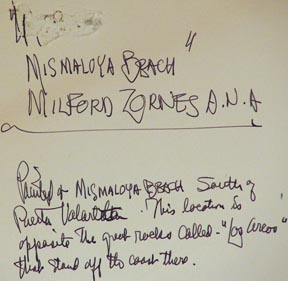 "MISMALOYA BEACH"
MILFORD ZORNES A.N.A
Painted at MISMALOYA BEACH South of
Puerto Vallarta. This location is
opposite the great rocks called - "Los Arcos"
that stand off the coast there.